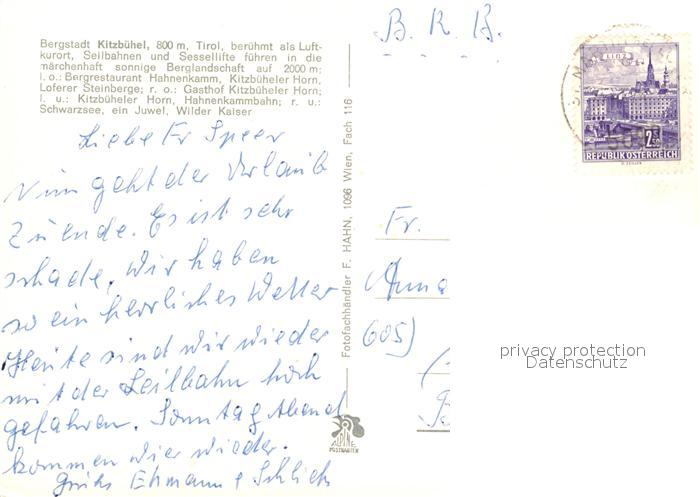 Bergstadt Kitzbühel, 800 m, Tirol, berühmt als Luft-
kurort, Seilbahnen und Sessellifte führen in die
märchenhaft sonnige Berglandschaft auf 2000 m;
l. o.: Bergrestaurant Hahnenkamm, Kitzbüheler Horn,
Loferer Steinberge; r. o.: Gasthof Kitzbüheler Horn;
l. u.: Kitzbüheler Horn, Hahnenkammbahn; r. u.:
Schwarzsee, ein Juwel, Wilder Kaiser
Liebe Fr Speer
Nun geht der Urlaub
zu ende. Es ist sehr
schade. Wir haben
so ein herrliches Wetter
Heute sind wir wieder
mit der Seilbahn hoch
gefahren. Sonntag Abend
kommen wier wieder.
Ehmann
Fotofachhändler F. HAHN, 1096 Wien, Fach 116
ALPINE
POSTKARTEN
B. R. D.
LINZ
2.50
REPUBLIK ÖSTERREICH
Fr.
Anna
605)
privacy protection
Datenschutz